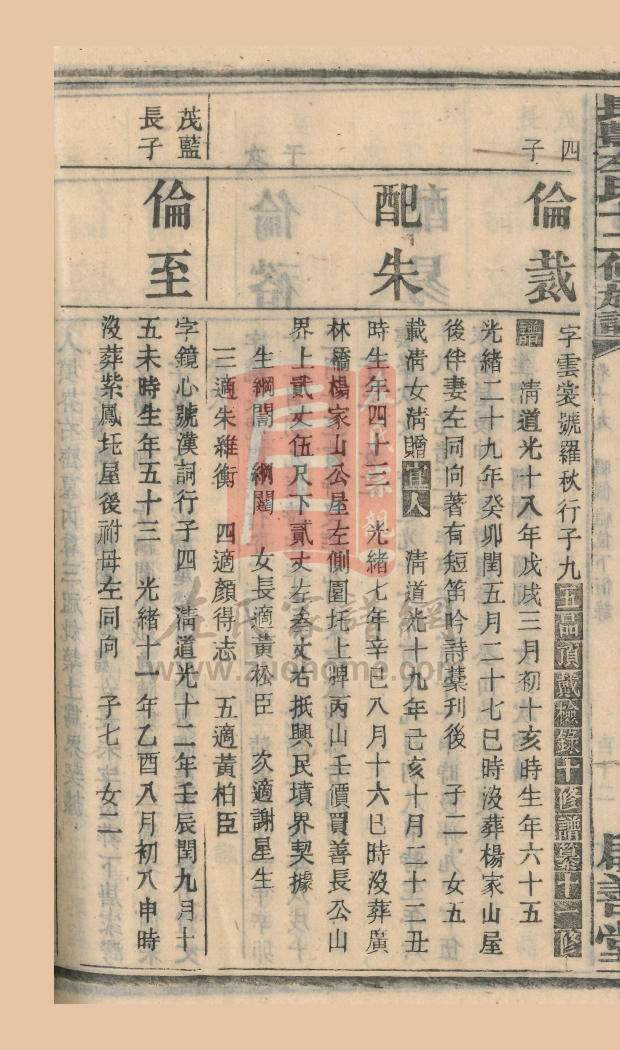 四
子
倫裁
字雲裳號羅秋行子九五品頂戴檢錄十修譜纂十二修
譜 清道光十八年戊戌三月初十亥時生年六十五
光緒二十九年癸卯閏五月二十七巳時沒葬楊家山屋
後伴妻左同向著有短笛吟詩藁刊後 子二 女五
配朱
載清女清贈宜人 清道光十九年己亥十月二十二丑
時生年四十三 光緒七年辛巳八月十六巳時沒葬廣
林橋楊家山公屋左側園圫上牌丙山壬價買善長公山
界上貳丈伍尺下貳丈左叁丈右抵興民墳界契據
生綱閣 綱闥 女長適黃松臣 次適謝星生
三適朱維衡 四適顏得志 五適黃柏臣
茂藍
長子
倫至
字鏡心號漢詞行子四 清道光十二年壬辰閏九月十
五未時生年五十三 光緒十一年乙酉八月初八申時
沒葬紫鳳圫屋後祔母左同向 子七 女二
左氏家譜網
www.zuohome.com